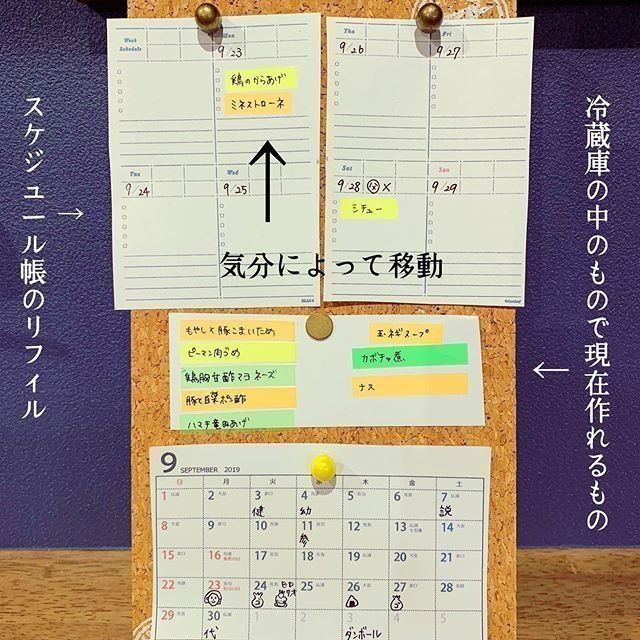 Week Schedule
Mon
9/23
鶏のからあげ
ミネストローネ
Tue
9/24
Wed
9/25
Thu
9/26
Fri
9/27
Sat
9/28
シチュー
Sun
9/29
スケジュール帳のリフィル
→
↑
気分によって移動
冷蔵庫の中のもので現在作れるもの
←
もやしと豚こまいため
ピーマン肉づめ
鶏胸甘酢マヨネーズ
豚と白菜ポン酢
ハマチ竜田あげ
玉ネギスープ
カボチャ煮
ナス
9 SEPTEMBER 2019
日 月 火 水 木 金 土
1 2 3 4 5 6 7
健 幼 説
8 9 10 11 12 13 14
参
15 16 17 18 19 20 21
22 23 24 25 26 27 28
29 30
代 ダンボール